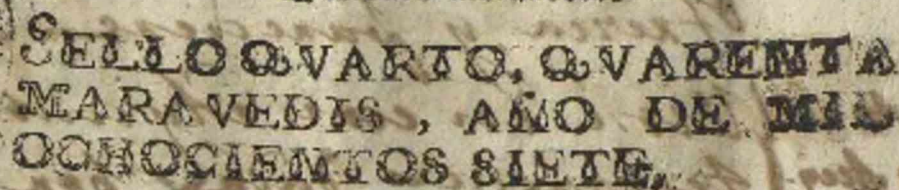 SELLO QVARTO, QVARENTA
MARAVEDIS, AÑO DE MIL
OCHOCIENTOS SIETE.